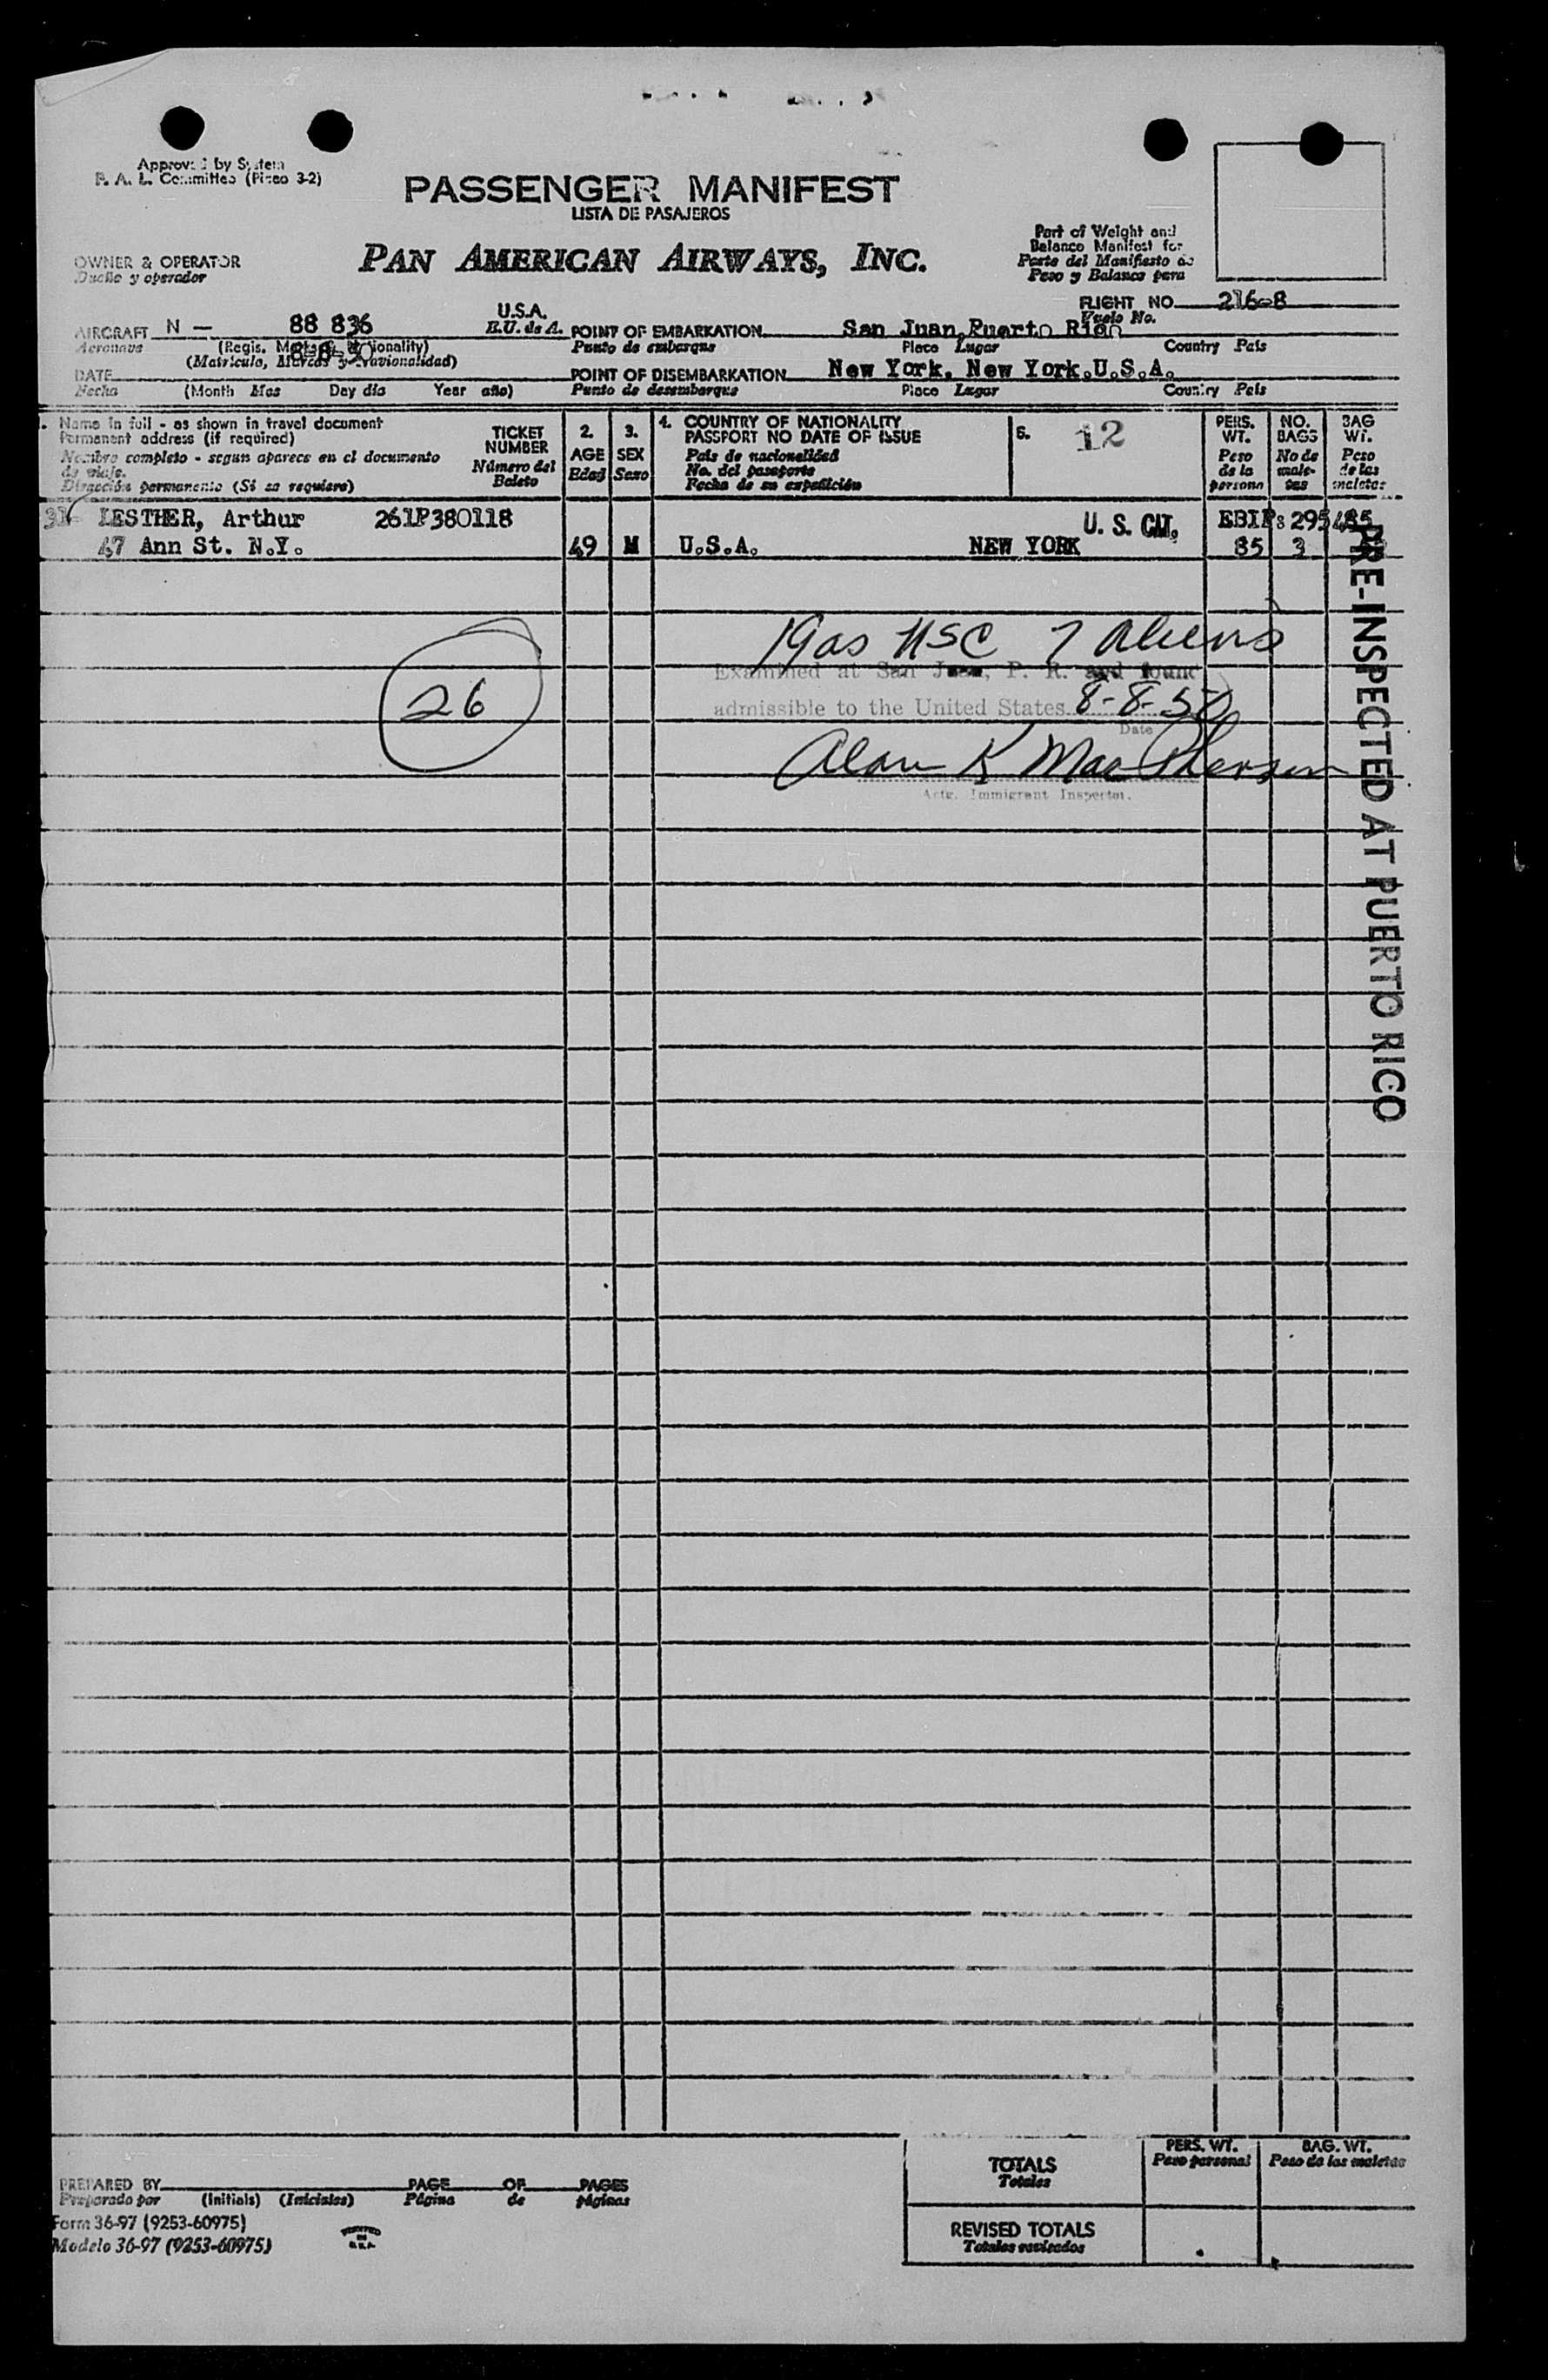 Approved by System
P. A. L. Committee (Piseo 3-2)
PASSENGER MANIFEST
LISTA DE PASAJEROS
Part of Weight and
Balance Manifest for
Parte del Manifiesto de
Peso y Balance para
OWNER & OPERATOR
Dueño y operador
PAN AMERICAN AIRWAYS, INC.
FLIGHT NO. 216-8
Vuelo No.
AIRCRAFT N — 88 836 U.S.A.
Aeronave (Regis. Marks & Nationality) E.U. de A.
(Matrícula, Marcas y Navionalidad)
POINT OF EMBARKATION San Juan, Puerto Rico
Punto de embarque Place Lugar Country País
DATE 8-8-50
Fecha (Month Mes Day día Year año)
POINT OF DISEMBARKATION New York, New York, U.S.A.
Punto de desembarque Place Lugar Country País
1. Name in full - as shown in travel document
Permanent address (if required)
Nombre completo - segun aparece en el documento
de viaje.
Dirección permanente (Si se requiere)
TICKET
NUMBER
Número del
Boleto
2.
AGE
Edad
3.
SEX
Sexo
4. COUNTRY OF NATIONALITY
PASSPORT NO DATE OF ISSUE
País de nacionalidad
No. del pasaporte
Fecha de su expedición
5. 12
PERS.
WT.
Peso
de la
persona
NO.
BAGS
No de
male-
tas
BAG
Wt.
Peso
de las
maletas
31 LESTHER, Arthur 261P380118 U. S. CIT. EBIP: 295485
47 Ann St. N.Y. 49 M U.S.A. NEW YORK 85 3
19 as USC 7 Aliens
Examined at San Juan, P. R. and found
admissible to the United States 8-8-50
Date
26
Alan K MacPherson
Actg. Immigrant Inspector.
PRE-INSPECTED AT PUERTO RICO
TOTALS
Totales
PERS. WT.
Peso personal
BAG. WT.
Peso de las maletas
REVISED TOTALS
Totales revisados
PREPARED BY PAGE OF PAGES
Preparado por (Initials) (Iniciales) Página de páginas
Form 36-97 (9253-60975)
Modelo 36-97 (9253-60975)
PRINTED
IN
U.S.A.